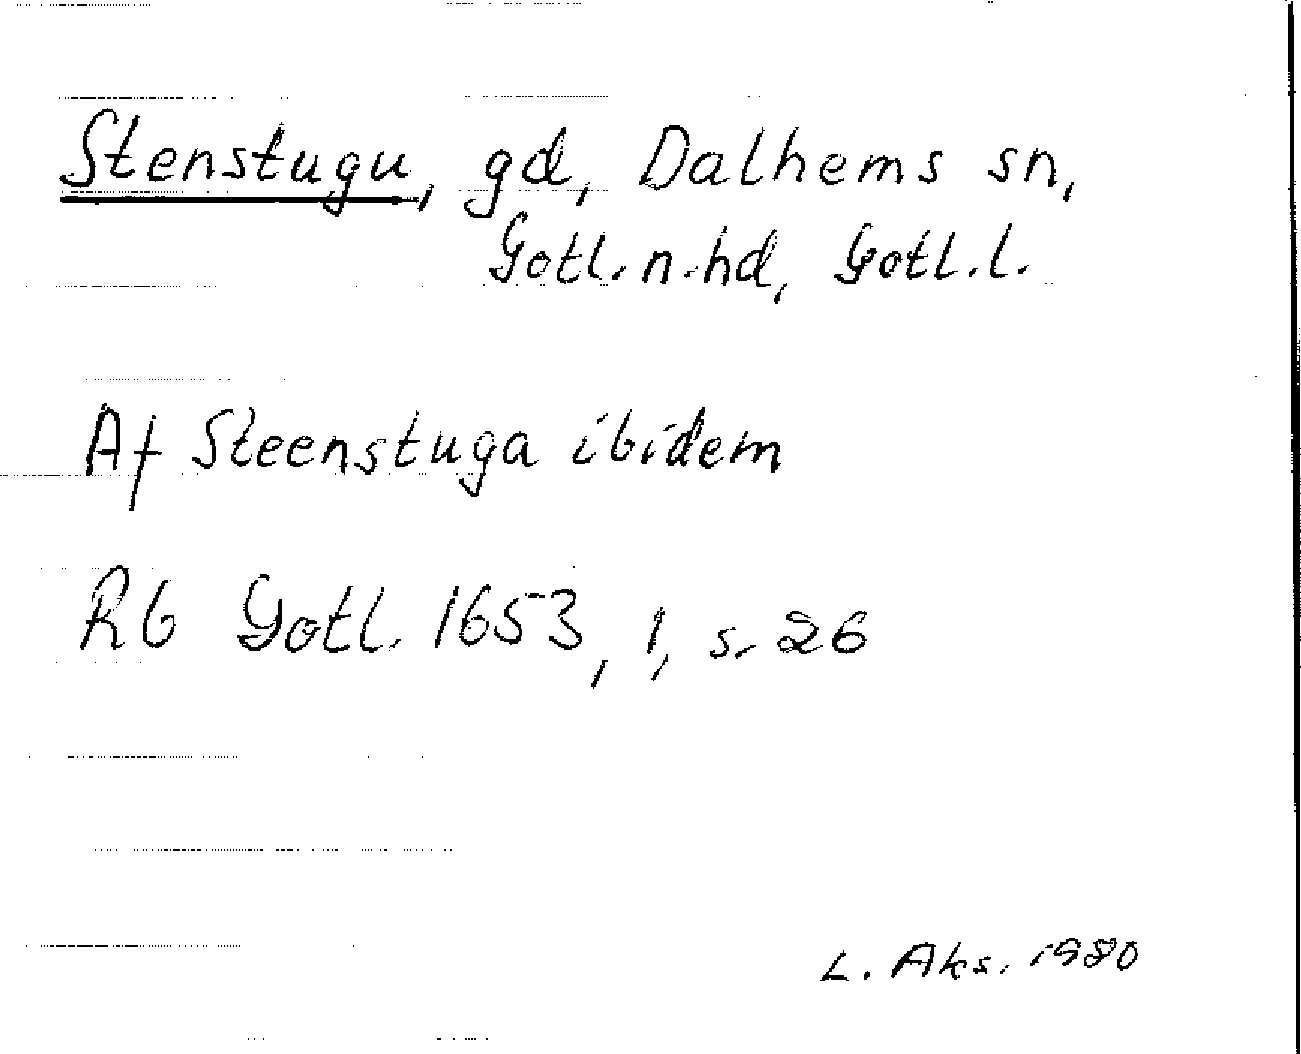 Stenstugu, gd, Dalhems sn,
Gotl. n. hd, Gotl. l.
Af Steenstuga ibidem
Rb Gotl. 1653, 1, s. 26
L. Aks. 1980